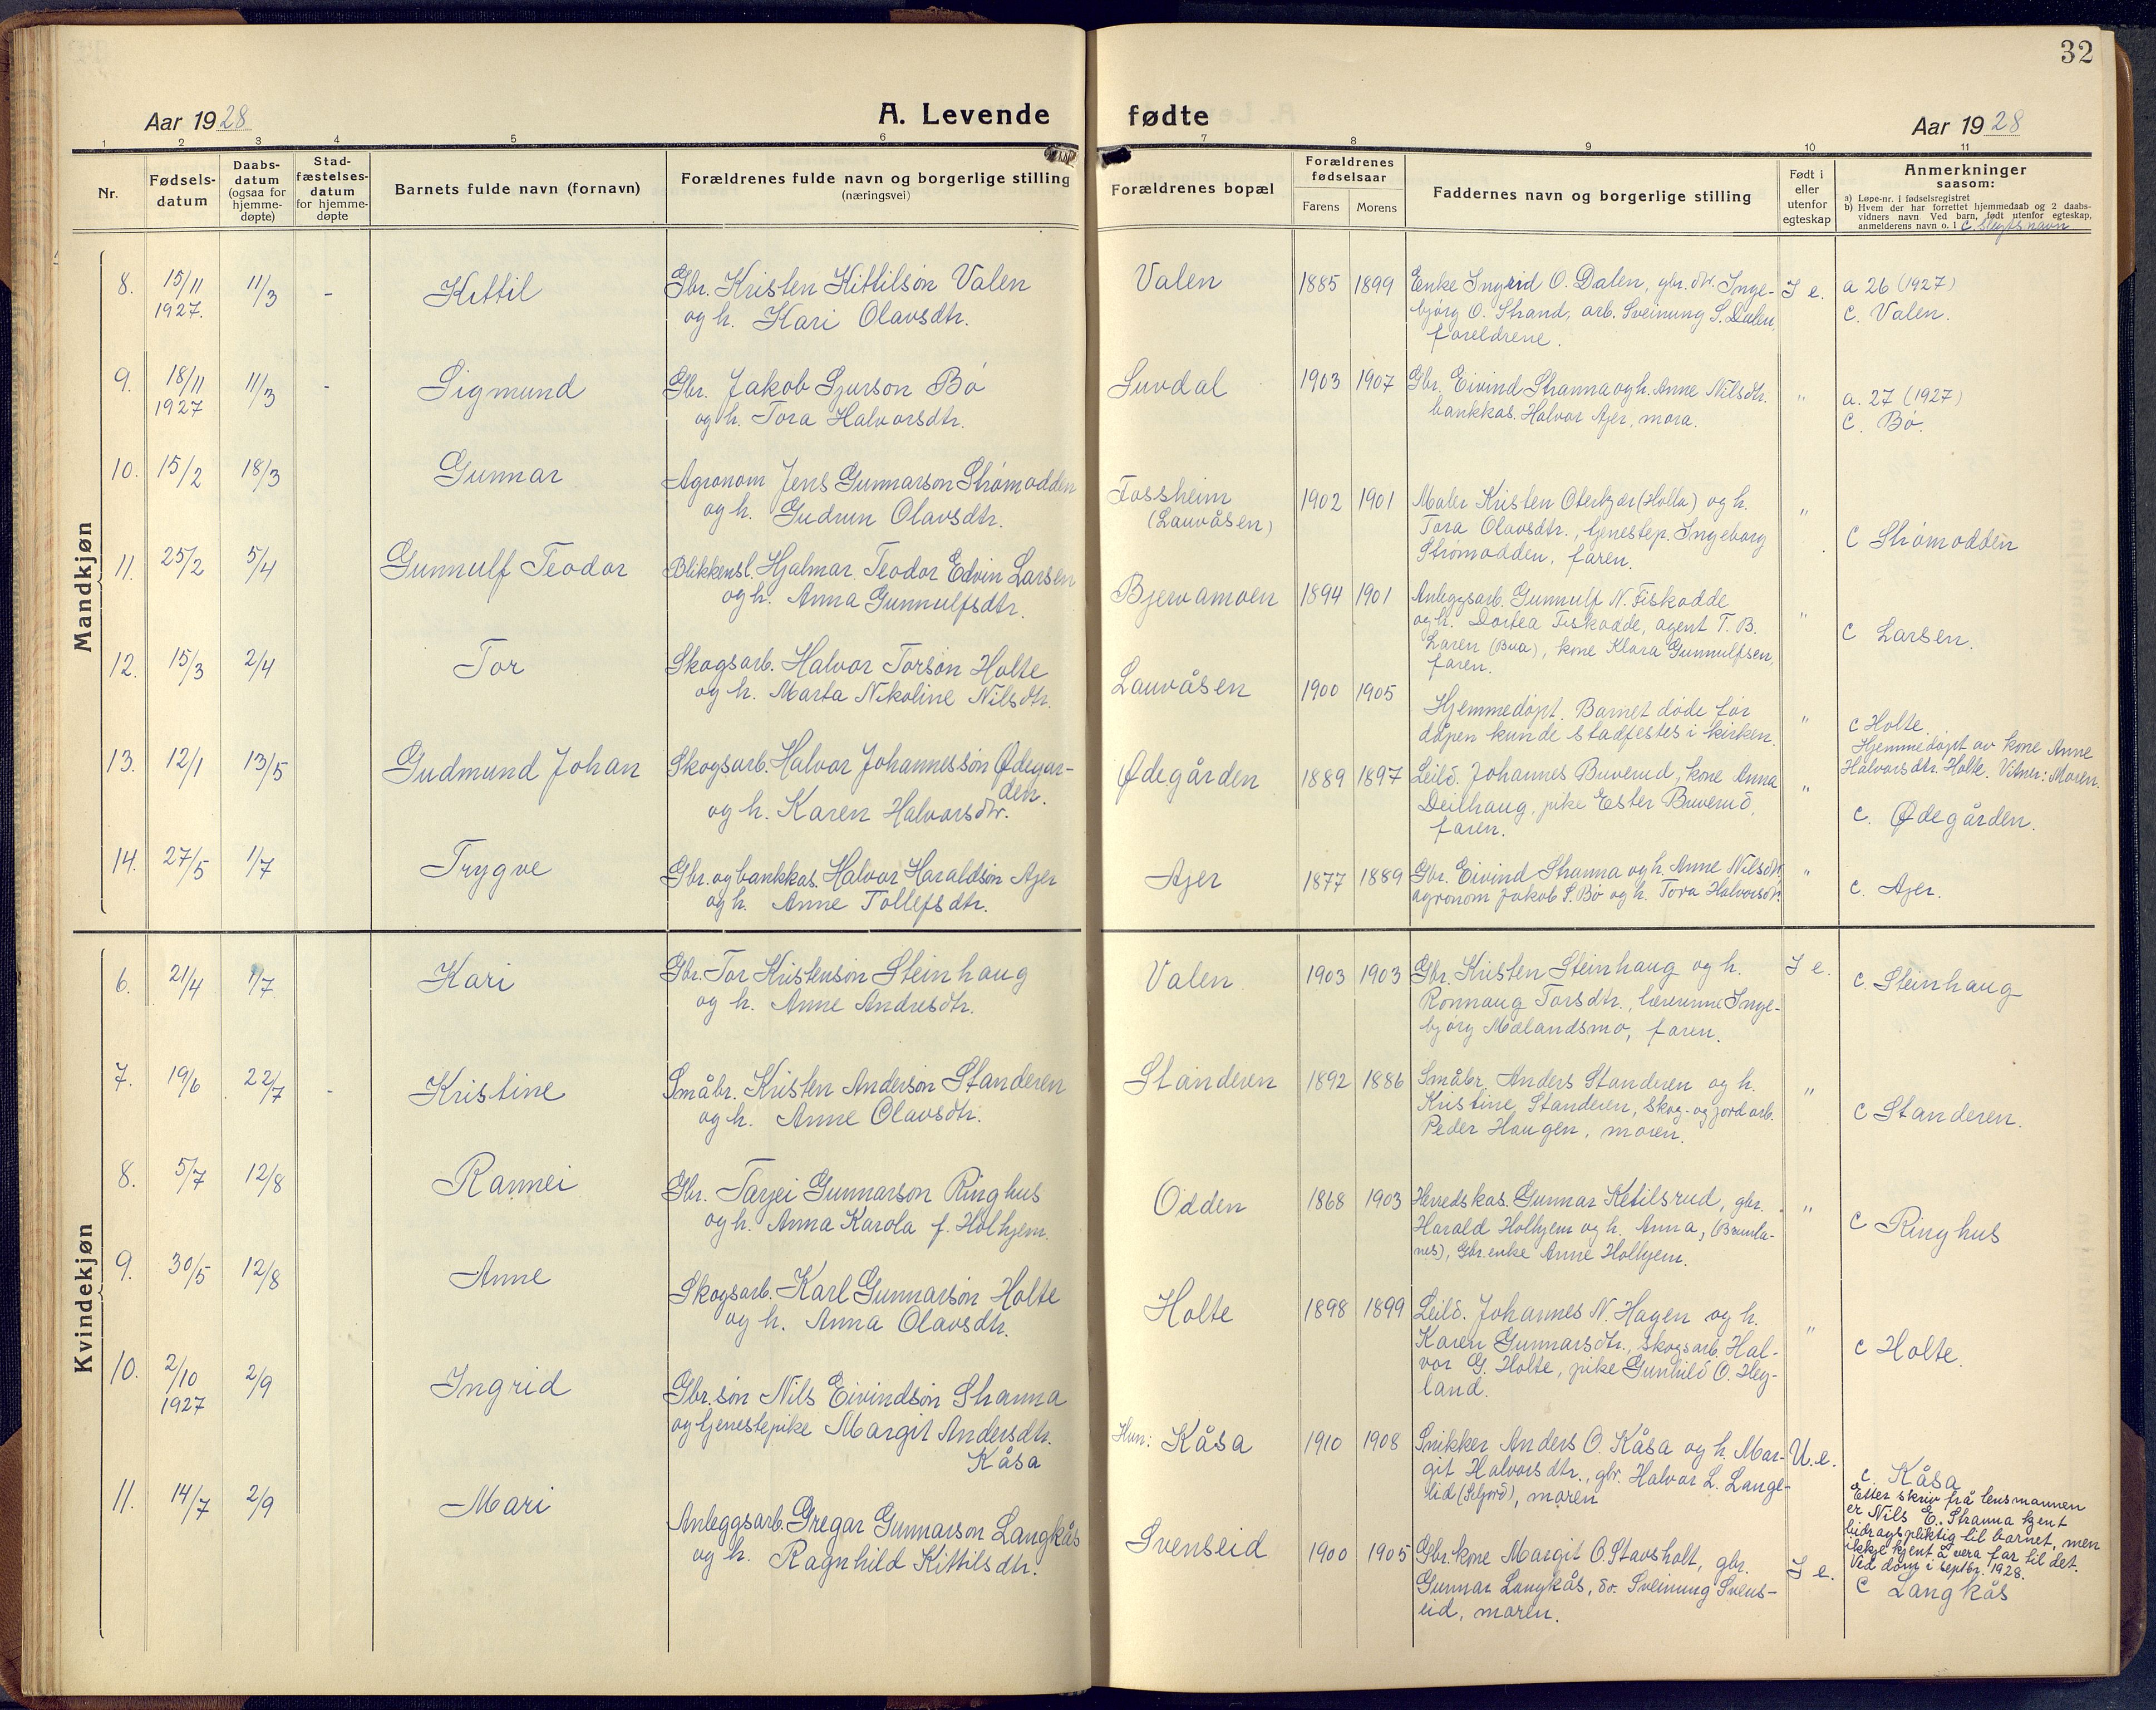 32
Aar 1928
A. Levende fødte
Aar 1928
1 2 3 4 5 6 7 8 9 10 11
Nr.
Fødsels-
datum
Daabs-
datum
(ogsaa for
hjemme-
døpte)
Stad-
fæstelses-
datum
for hjemme-
døpte
Barnets fulde navn (fornavn)
Forældrenes fulde navn og borgerlige stilling
(næringsvei)
Forældrenes bopæl
Forældrenes
fødselsaar
Farens Morens
Faddernes navn og borgerlige stilling
Født i
eller
utenfor
egteskap
Anmerkninger
saasom:
a) Løpe-nr. i fødselsregistret
b) Hvem der har forrettet hjemmedaab og 2 daabs-
vidners navn Ved barn, født utenfor egteskap,
anmelderens navn o. l C. slegtsnavn
Mandkjøn
8. 15/11
1927. 11/3 -
Kittil
Gbr. Kristen Kittilson Valen
og h. Kari Olavsdtr.
Valen
1885 1899
Enke Ingrid O. Dalen, gbr. dtr. Inge-
bjørg O. Strand, arb. Sveinung S. Dalen,
foreldrene.
I e.
a 26 (1927)
C. Valen.
9. 18/11
1927 11/3 -
Sigmund
Gbr. Jakob Sjurson Bø
og h. Tora Halvorsdtr.
Suvdal
1903 1907
Gbr. Eivind Stranna og h. Anne Nilsdtr.
bankkas. Halvor Ajer, mora.
"
a. 27 (1927)
C. Bø.
10. 15/2 18/3
Gunnar
Agronom Jens Gunnarson Strømodden
og h. Gudrun Olavsdtr.
Fossheim
(Lauvåsen)
1902 1901
Maler Kristen Oterkjær (Holla) og h.
Tora Olavsdtr., tjenestep. Ingeborg
Strømodden, faren.
"
C Strømodden
11. 25/2 5/4
Gunnulf Teodor
Blikkensl. Hjalmar Teodor Edvin Larsen
og h. Anna Gunnulfsdtr.
Bjervamoen
1894 1901
Anleggsarb. Gunnulf N. Fiskodde
og h. Dortea Fiskodde, agent T. B.
Laren (Bua), kone Klara Gunnulfsen,
faren.
"
C Larsen.
12. 15/3 2/4
Tor
Skogsarb. Halvor Torson Holte
og h. Marta Nikoline Nilsdtr.
Lauvåsen
1900 1905
Hjemmedøpt. Barnet døde før
dåpen kunde stadfestes i kirken.
"
C Holte.
Hjemmedøpt av kone Anne
Halvorsdtr. Holte. Vitner: Moren.
13. 12/1 13/5
Gudmund Johan
Skogsarb. Halvor Johannesson Ødegar-
den.
og h. Karen Halvorsdtr.
Ødegården
1889 1897
Leild. Johannes Buverud, kone Anna
Deilhaug, pike Ester Buverud,
faren.
"
C. Ødegården.
14. 27/5 1/7
Trygve
Gbr. og bankkas. Halvor Haraldson Ajer
og h. Anne Tollefsdtr.
Ajer
1877 1889
Gbr. Eivind Stranna og h. Anne Nilsdtr.
agronom Jakob S. Bø og h. Tora Halvorsdtr.
"
C. Ajer.
Kvindekjøn
6. 21/4 1/7
Kari
Gbr. Tor Kristenson Steinhaug
og h. Anne Andresdtr.
Valen
1903 1903
Gbr. Kristen Steinhaug og h.
Rønnaug Torsdtr., lærerinne Inge-
bjørg Mælandsmo, faren.
I e.
C. Steinhaug
7. 19/6 22/7 -
Kristine
Småbr. Kristen Anderson Standeren
og h. Anne Olavsdtr.
Standeren
1892 1886
Småbr. Anders Standeren og h.
Kristine Standeren, skog- og jordarb.
Peder Haugen, moren.
"
C Standeren.
8. 5/7 12/8
Rannei
Gbr. Tarjei Gunnarson Ringhus
og h. Anna Karola f. Holhjem.
Odden
1868 1903
Herredskas. Gunnar Ketilsrud, gbr.
Harald Holhjem og h. Anna, (Brunla-
nes), Gbr.enke Anne Holhjem.
"
C Ringhus
9. 30/5 12/8
Anne
Skogsarb. Karl Gunnarson Holte
og h. Anna Olavsdtr.
Holte
1898 1899
Leild. Johannes N. Hagen og h.
Karen Gunnarsdtr., skogsarb. Hal-
vor G. Holte, pike Gunhild O. Heg-
land.
"
C Holte.
10. 2/10
1927 2/9
Ingrid
Gbr.søn Nils Eivindson Stranna
og tjenestepike Margit Andersdtr.
Kåsa
Hun: Kåsa
1910 1908
Snikker Anders O. Kåsa og h. Mar-
git Halvorsdtr., gbr. Halvor L. Lange-
lid (Seljord), moren
U. e.
C. Kåsa
Etter skriv frå lensmannen
er Nils E. Stranna kjent
bidragspliktig til barnet, men
ikkje kjent å vera far til det.
Ved dom i septbr. 1928.
11. 14/7 2/9
Mari
Anleggsarb. Gregar Gunnarson Langkås
og h. Ragnhild Kittilsdtr.
Svenseid
1900 1905
Gbr.kone Margit O. Stavsholt, gbr.
Gunnar Langkås, do. Sveinung Svens-
eid, moren.
I e.
C Langkås